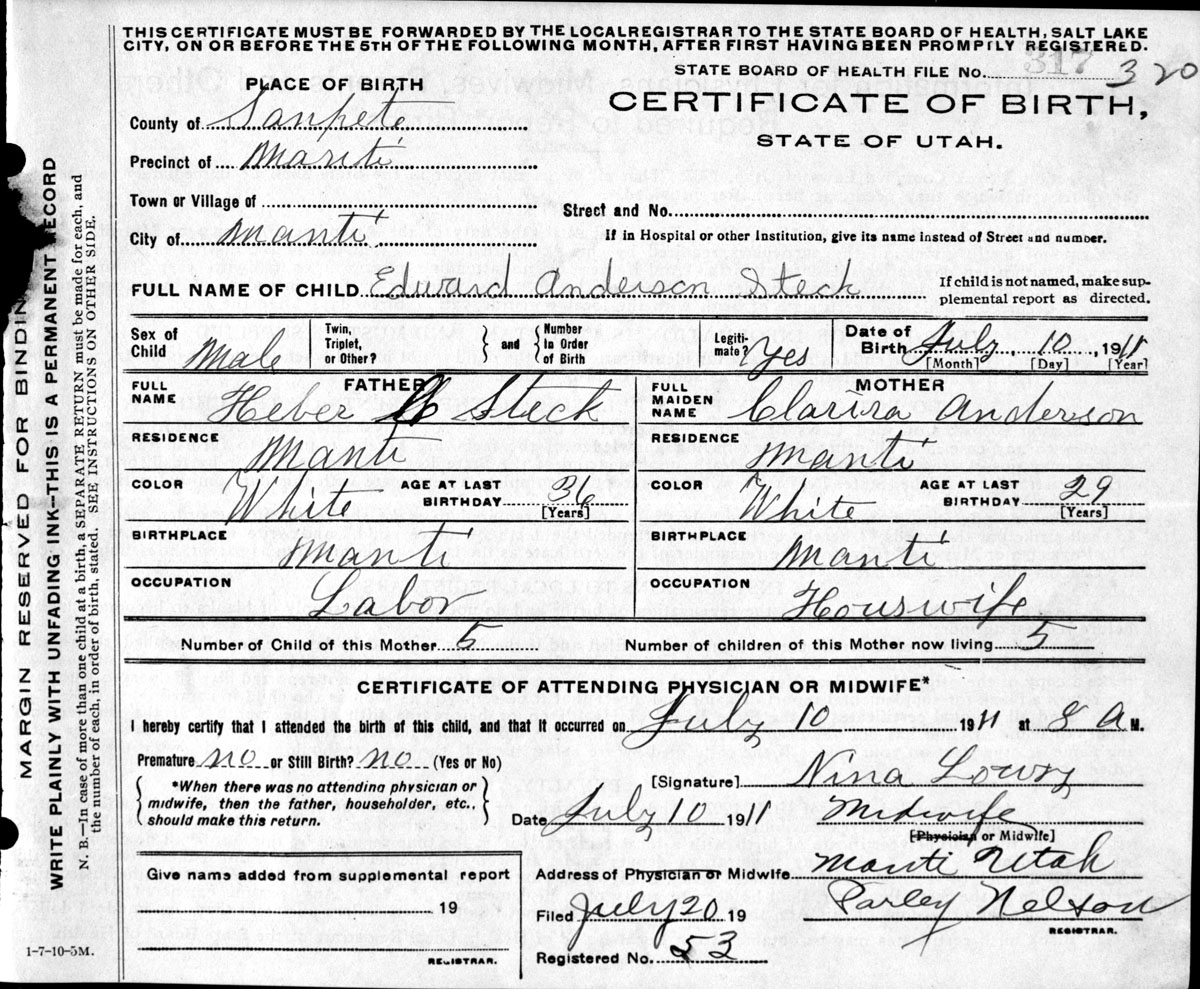 THIS CERTIFICATE MUST BE FORWARDED BY THE LOCAL REGISTRAR TO THE STATE BOARD OF HEALTH, SALT LAKE
CITY, ON OR BEFORE THE 5TH OF THE FOLLOWING MONTH, AFTER FIRST HAVING BEEN PROMPTLY REGISTERED.
STATE BOARD OF HEALTH FILE No. 317 320
PLACE OF BIRTH
CERTIFICATE OF BIRTH,
STATE OF UTAH.
County of Sanpete
Precinct of Manti
Town or Village of
Street and No.
City of Manti
If in Hospital or other Institution, give its name instead of Street and number.
FULL NAME OF CHILD Edward Anderson Steck
If child is not named, make sup-
plemental report as directed.
Sex of Child Male
Twin, Triplet, or Other? and Number In Order of Birth
Legiti-mate? Yes
Date of Birth July, 10, 1911
[Month] [Day] [Year]
FATHER
FULL NAME Heber Steck
RESIDENCE Manti
COLOR White AGE AT LAST BIRTHDAY 36
[Years]
BIRTHPLACE Manti
OCCUPATION Labor
MOTHER
FULL MAIDEN NAME Clarira Anderson
RESIDENCE Manti
COLOR White AGE AT LAST BIRTHDAY 29
[Years]
BIRTHPLACE Manti
OCCUPATION Houswife
Number of Child of this Mother 5 Number of children of this Mother now living 5
CERTIFICATE OF ATTENDING PHYSICIAN OR MIDWIFE*
I hereby certify that I attended the birth of this child, and that it occurred on July 10 1911 at 8 A M.
Premature no or Still Birth? no (Yes or No)
*When there was no attending physician or
midwife, then the father, householder, etc.,
should make this return.
[Signature] Nina Lowry
Date July 10 1911 Midwife
[Physician or Midwife]
Give name added from supplemental report
19
REGISTRAR.
Address of Physician or Midwife Manti Utah
Filed July 20 19 Parley Nelson
REGISTRAR.
Registered No. 53
MARGIN RESERVED FOR BINDIN
WRITE PLAINLY WITH UNFADING INK—THIS IS A PERMANENT RECORD
N. B.—In case of more than one child at a birth, a SEPARATE RETURN must be made for each, and
the number of each, in order of birth, stated. SEE INSTRUCTIONS ON OTHER SIDE.
1-7-10-5M.